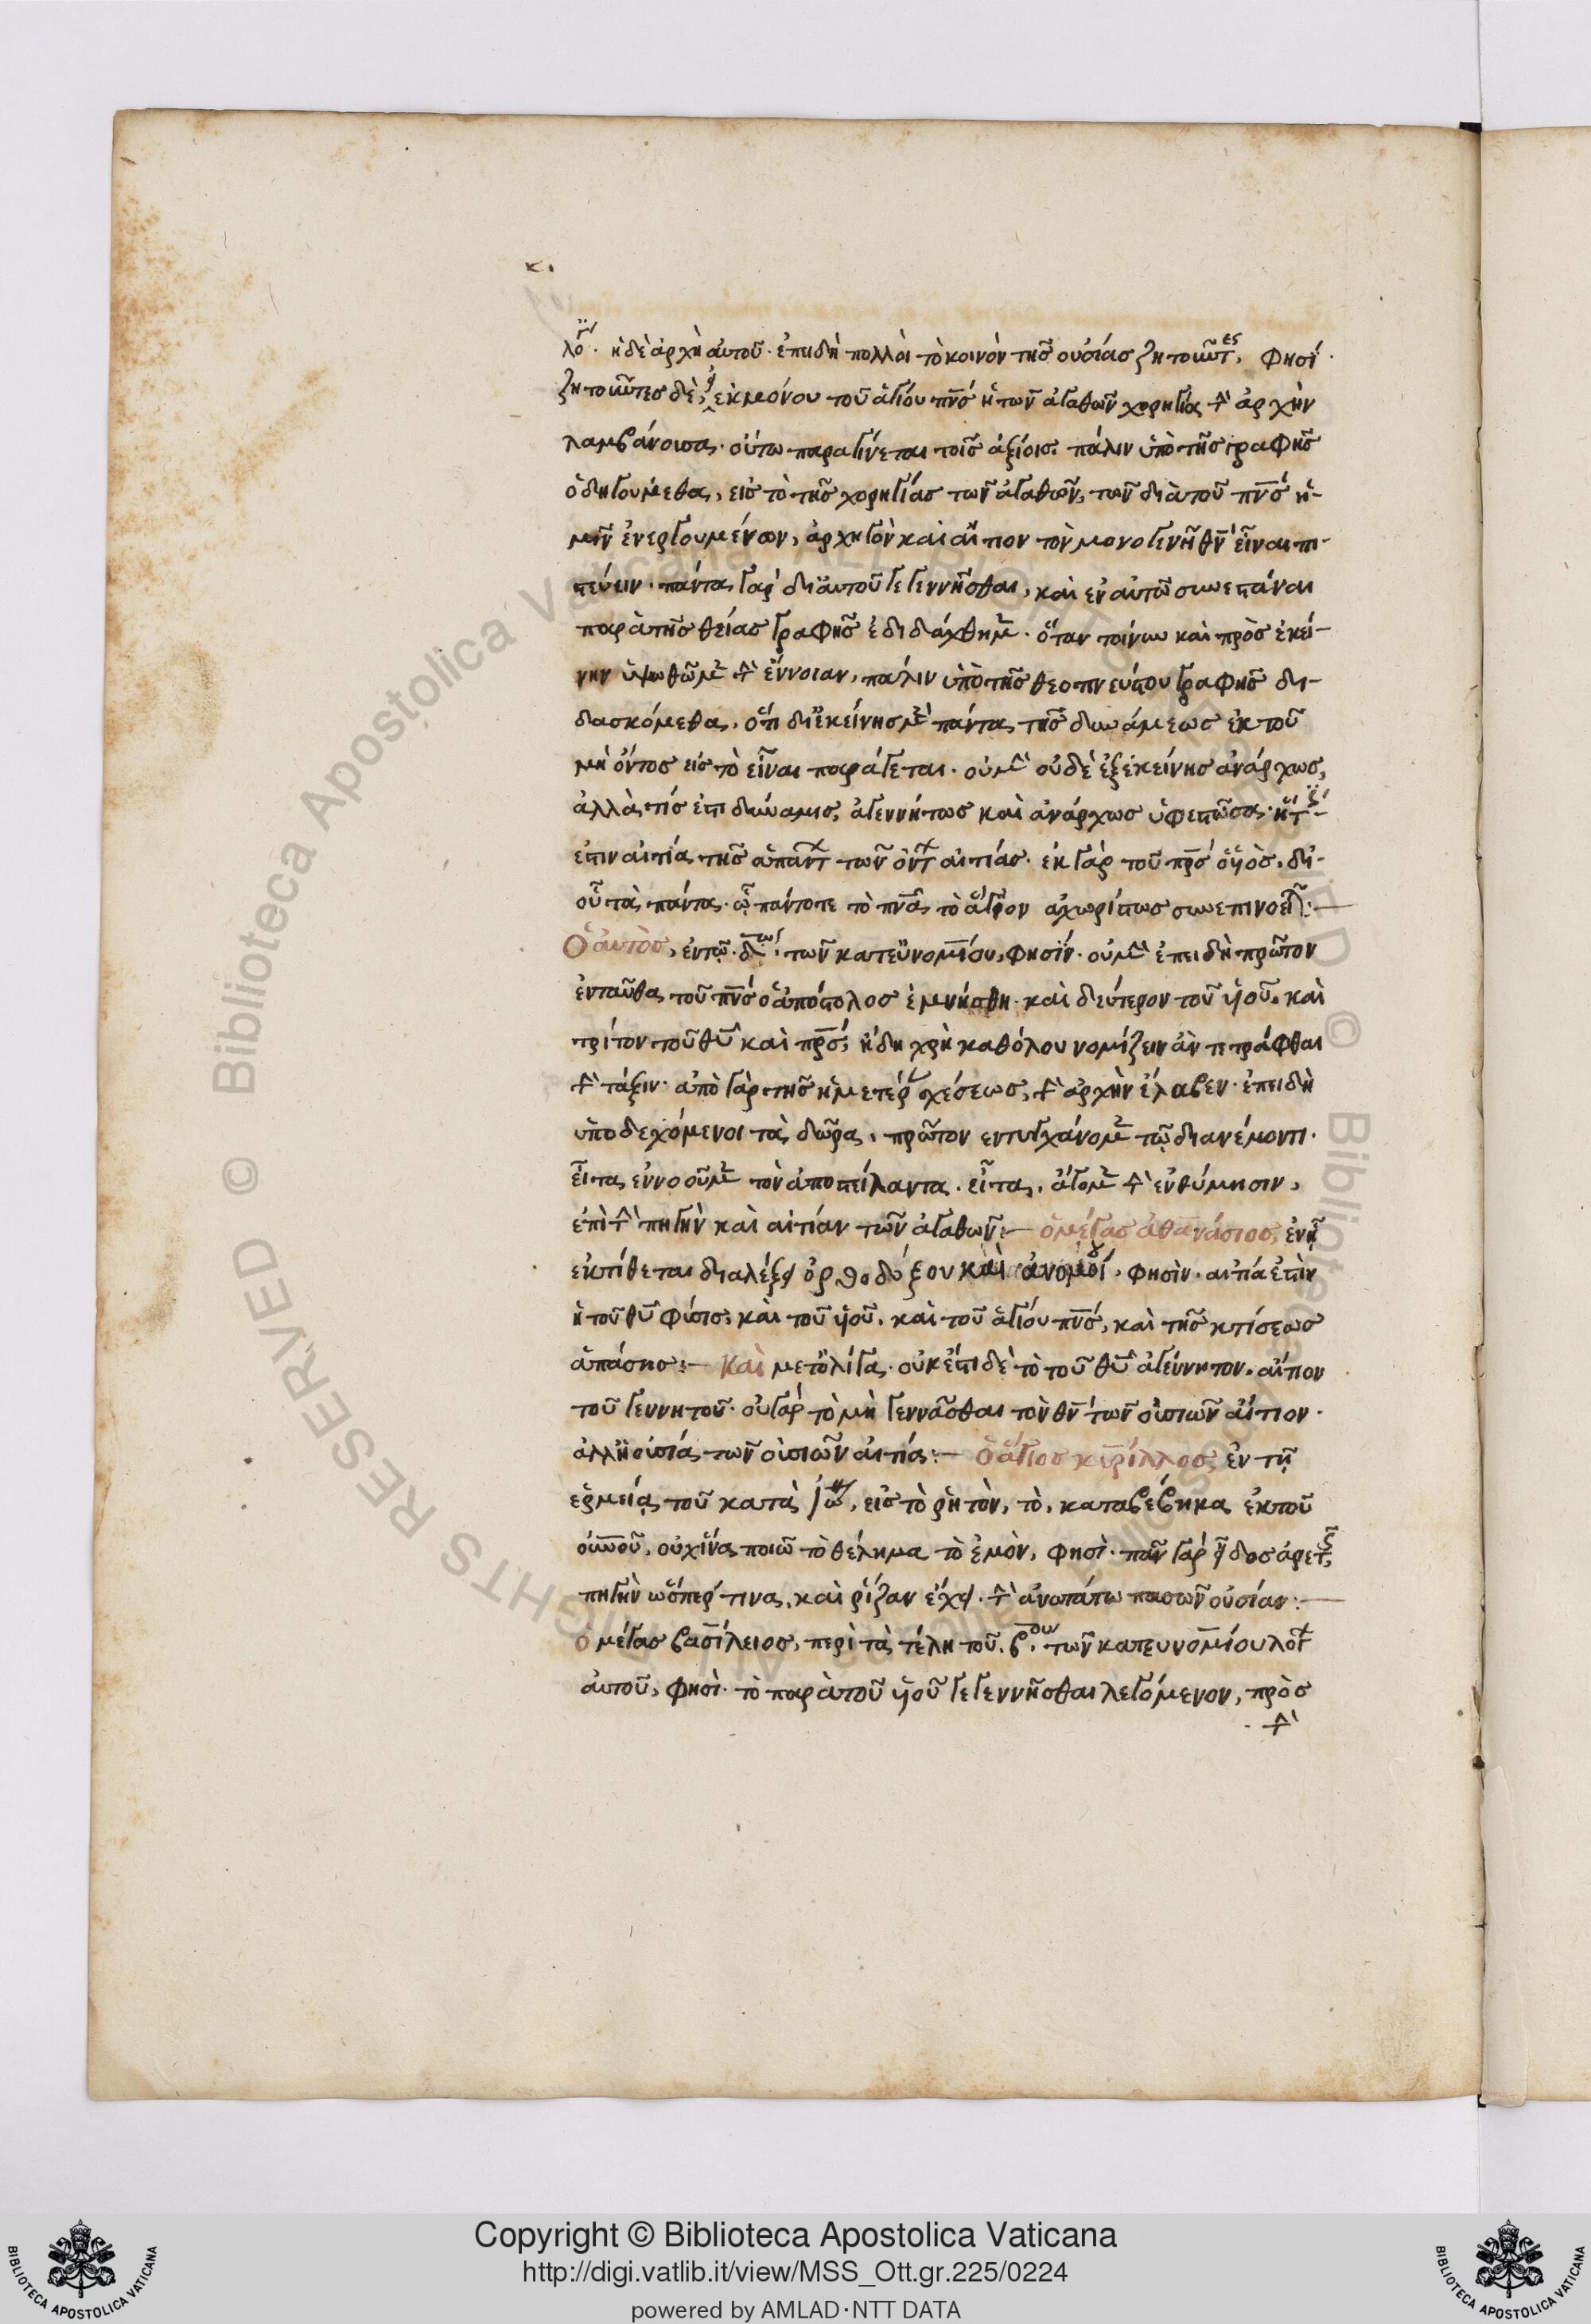 κ.
λό. ἡ δὲ ἀρχὴ αὐτοῦ. ἐπειδὴ πολλοὶ τὸ κοινὸν τῆς οὐσίας ζητοῦντες, φησί.
ζητοῦντες δὲ, ἐκ μόνου τοῦ ἁγίου πνσ ἡ τῶν ἀγαθῶν χορηγία τὴν ἀρχὴν
λαμβάνουσα. οὕτω παραγίνεται τοῖς ἀξίοις. πάλιν ὑπὸ τῆς γραφῆς
ὁδηγούμεθα, εἰς τὸ τῆς χορηγίας τῶν ἀγαθῶν, τῶν διὰ τοῦ πνσ ἡ-
μῖν ἐνεργουμένων, ἀρχηγὸν καὶ αἴτιον τὸν μονογενῆ θν εἶναι πι-
στεύειν. πάντα γὰρ δι' αὐτοῦ γεγεννῆσθαι, καὶ ἐν αὐτῷ συνεστάναι
παρὰ τῆς θείας γραφῆς ἐδιδάχθημεν. ὅταν τοίνυν καὶ πρὸς ἐκεί-
νην ὑψωθῶμεν τὴν ἔννοιαν, πάλιν ὑπὸ τῆς θεοπνεύστου γραφῆς δι-
δασκόμεθα. ὅτι δι' ἐκείνης μὲν πάντα τῆς δυνάμεως ἐκ τοῦ
μὴ ὄντος εἰς τὸ εἶναι παράγεται. οὐ μὴν οὐδὲ ἐξ ἐκείνης ἀνάρχως,
ἀλλά τίς ἐστι δύναμις, ἀγεννήτως καὶ ἀνάρχως ὑφεστῶσα. ἥτις
ἐστιν αἰτία τῆς ἁπάντων τῶν ὄντων αἰτίας. ἐκ γὰρ τοῦ πρσ ὁ υἱὸς. δι'
οὗ τὰ πάντα. ᾧ πάντοτε τὸ πνα τὸ ἅγιον ἀχωρίστως συνεπινοεῖται:—
Ὁ αὐτὸς, ἐν τῷ. δω. τῶν κατ' εὐνομίου, φησίν. οὐ μὴν ἐπειδὴ πρῶτον
ἐνταῦθα τοῦ πνσ ὁ ἀπόστολος ἐμνήσθη. καὶ δεύτερον τοῦ υἱοῦ. καὶ
τρίτον τοῦ θυ καὶ πρσ, ἤδη χρὴ καθόλου νομίζειν ἀντεστράφθαι
τὴν τάξιν. ἀπὸ γὰρ τῆς ἡμετέρας σχέσεως, τὴν ἀρχὴν ἔλαβεν. ἐπειδὴ
ὑποδεχόμενοι τὰ δῶρα. πρῶτον ἐντυγχάνομεν τῷ διανέμοντι.
εἶτα ἐννοοῦμεν τὸν ἀποστείλαντα. εἶτα, ἄγομεν τὴν ἐνθύμησιν,
ἐπὶ τὴν πηγὴν καὶ αἰτίαν τῶν ἀγαθῶν:— ὁ μέγας ἀθανάσιος, ἐν ᾗ
ἐκτίθεται διαλέξει ὀρθοδόξου καὶ ἀνομοίου. φησὶν. αἰτία ἐστὶν
ἡ τοῦ θυ φύσις, καὶ τοῦ υἱοῦ. καὶ τοῦ ἁγίου πνσ, καὶ τῆς κτίσεως
ἁπάσης:— Καὶ μετ' ὀλίγα. οὐκ ἔστι δὲ τὸ τοῦ θυ ἀγέννητον. αἴτιον
τοῦ γεννητοῦ. οὐ γὰρ τὸ μὴ γεννᾶσθαι τὸν θν τῶν οὐσιῶν αἴτιον.
ἀλλ' ἡ οὐσία τῶν οὐσιῶν αἰτία:— ὁ ἅγιος κύριλλος, ἐν τῇ
ἑρμείᾳ τοῦ κατὰ ἰω, εἰς τὸ ῥητὸν, τὸ, καταβέβηκα ἐκ τοῦ
οὐνοῦ, οὐχ ἵνα ποιῶ τὸ θέλημα τὸ ἐμὸν, φησὶ. πᾶν γὰρ εἶδος ἀρετῆς,
πηγὴν ὥσπερ τινα, καὶ ῥίζαν ἔχει. τὴν ἀνωτάτω πασῶν οὐσίαν:—
ὁ μέγας βασίλειος, περὶ τὰ τέλη τοῦ. βου τῶν κατ' ευνομίου λόγων
αὐτοῦ, φησὶ. τὸ παρὰ τοῦ υἱοῦ γεγεννῆσθαι λεγόμενον, πρὸς
τὴν
Copyright © Biblioteca Apostolica Vaticana
http://digi.vatlib.it/view/MSS_Ott.gr.225/0224
powered by AMLAD·NTT DATA